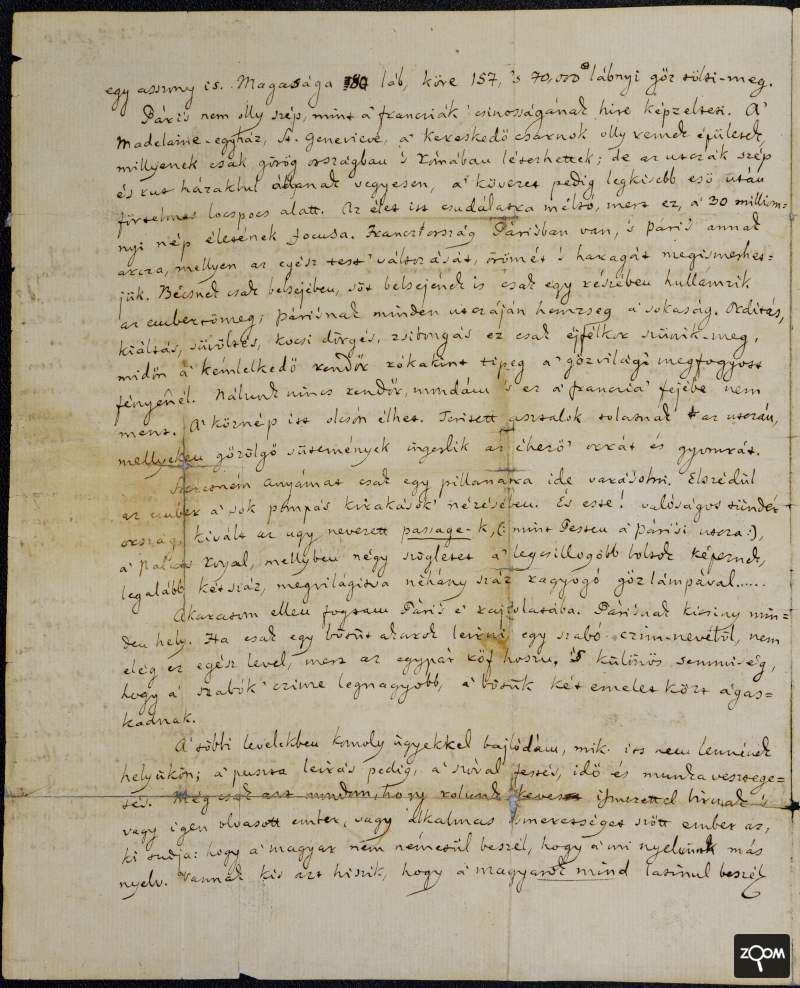 egy asszony is. Magassága 180 láb, köre 157, 's 70,000 lábnyi gőz tölti-meg.
Páris nem olly szép, mint a' franciák' csinosságának hire képzelteti. A'
Madelaine-egyház, St. Genevieve, a' kereskedő csarnok olly remek épületek,
millyenek csak görög országban 's rómában létezhettek; de az utczák szép
és rut házakbul állanak vegyesen, a' kövezet pedig legkisebb eső után
förtelmes locspocs alatt. Az élet itt csudálatra méltó, mert ez, a' 30 milliom=
nyi nép életének focusa. Francziország Párisban van, 's páris annak
arcza, mellyen az egész test' változását, örömét 's haragát megismerhet=
jük. Bécsnek csak belsejében, sőt belsejének is csak egy részében hullámzik
az embertömeg; párisnak minden utczáján hemzseg a' sokaság. Orditás,
kiáltás, süvöltés, kocsi dörgés, zsibongás ez csak éjfélkor szünik-meg,
midőn a' kémlelkedő rendőr rókakint tipeg a' gőzvilág' megfogyott
fényénél. Nálunk nincs rendőr, mondám 's ez a' francia' fejébe nem
ment. A' köznép itt olcsón élhet. Teritett asztalok tolatnak az utczán,
mellyeken gőzölgő sütemények ingerlik az éhező' orrát és gyomrát.
Szeretném anyámat csak egy pillanatra ide varásolni. Elszédül
az ember a' sok pompás kirakások' nézésében. És este! valóságos tündér
ország, kivált az ugy nevezett passage-k, (: mint Pesten a' párisi utcza :),
a' Palais royal, mellyben négy szögletet a' legcsillogóbb boltok képeznek,
legalább kétszáz, megvilágitva néhány száz ragyogó gőzlámpával.....
Akaratom ellen fogtam Páris' rajzolatába. Párisnak kicsiny min=
den hely. Ha csak egy bötüt akarok leirni egy szabó czim-nevéből, nem
elég ez egész levél, mert az egypár rőf hosszu. 's különös semmiség,
hogy a' szabók' czime legnagyobb, a' bötük két emelet közt ágas=
kadnak.
A' többi levelekben komoly ügyekkel bajlódám, mik itt nem lennének
helyükön; a' puszta leirás pedig, a' szóval festés, idő és munka vesztege=
tés. Még csak azt mondom, hogy rolunk keves ismerettel birnak 's
vagy igen olvasott ember, vagy alkalmas ismeretséget szőtt ember az,
ki tudja: hogy a' magyar nem németül beszél, hogy a' mi nyelvünk más
nyelv. Vannak kik azt hiszik, hogy a' magyarok mind latinul beszél
ZOOM